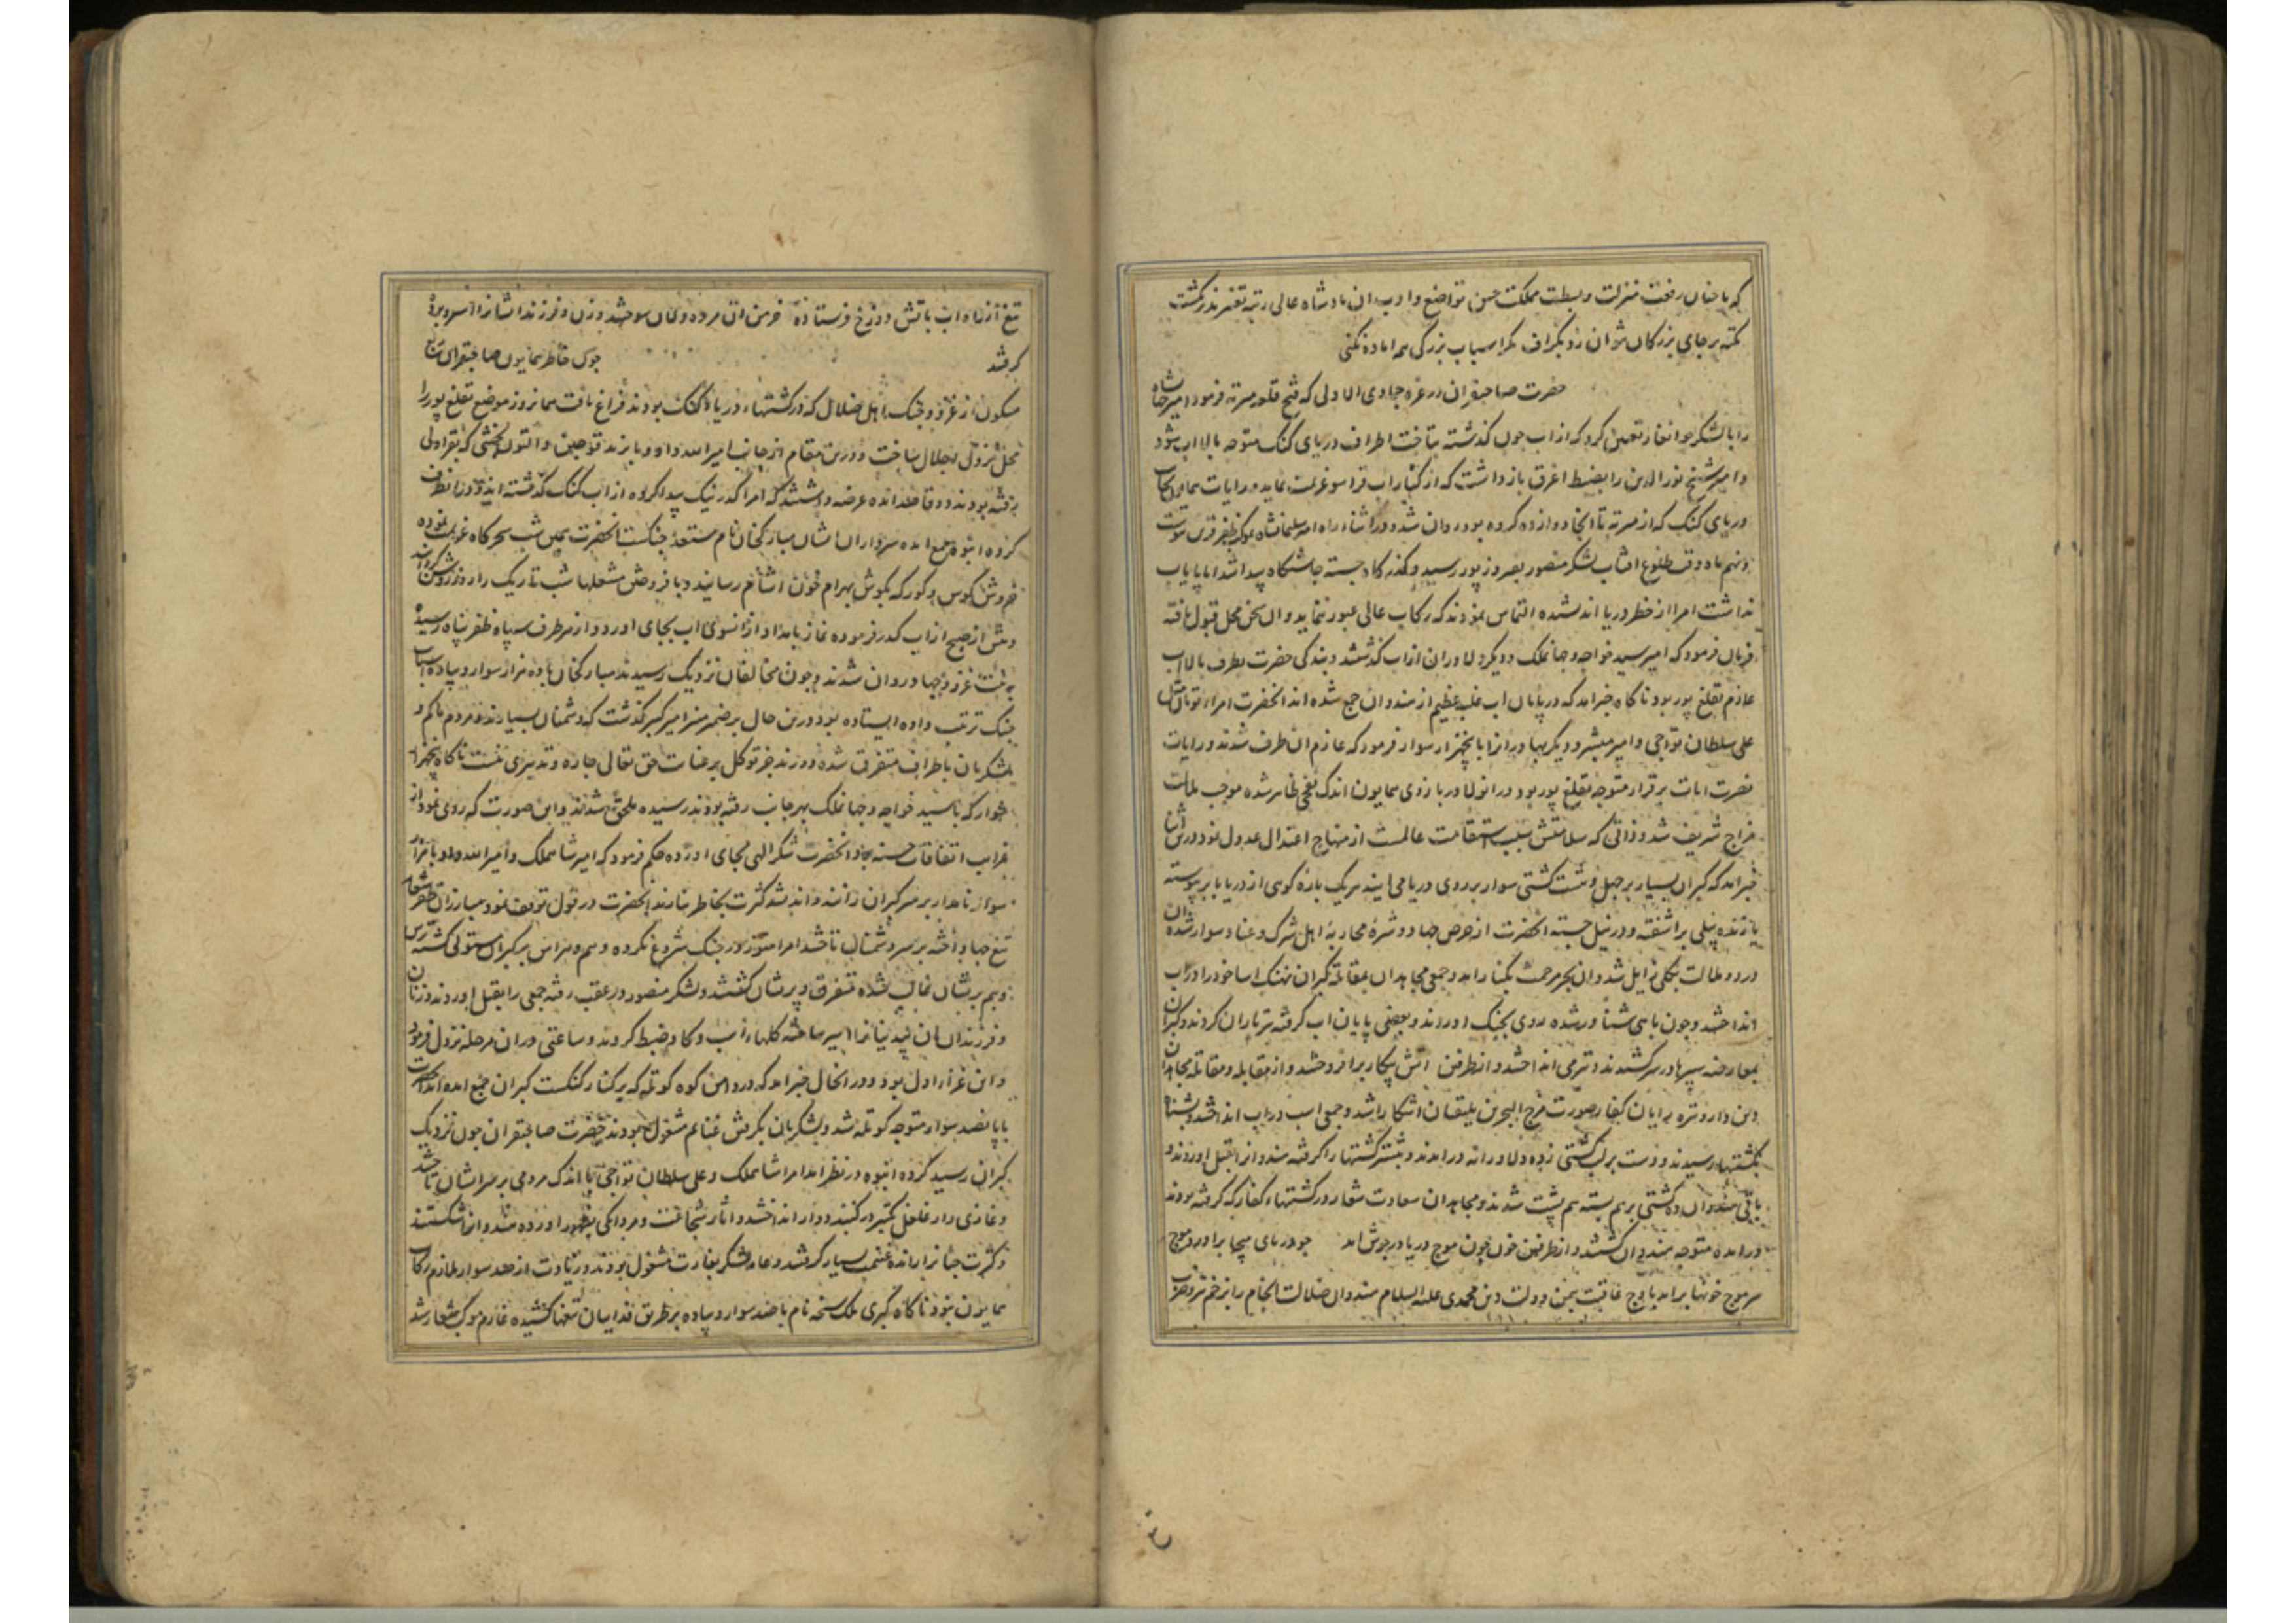 که با چنان رفعت منزلت و بسطت مملکت حسن تواضع و ادب ان بادشاه عالی رتبة
تکیه بر جای بزرکان نتوان زد بکزاف مکر اسباب بزرکی همه اماده کنی
حضرت صاحبقران در غره جمادی الاولی که فتح قلعه میرته فرمود امیر جهانشاه
را با لشکر جوانغار تعیین کرد که از اب جون کذشته بتاخت اطراف دریای کنک متوجه بالا اب شود
و امیر شیخ نور الدین را بضبط اغرق بازداشت که از کنار اب قراسو عزیمت نماید و رایات همایون
دریای کنک که از میرته تا انجا دوازده کروه بود روان شد و در اثناء راه امیر سلیمانشاه بموکب ظفر قرین پیوست
ماه وقت طلوع افتاب لشکر منصور بفیروزپور رسید و کذرکاه جسته جاشتکاه پیدا شد اما پایاب
نداشت امرا از خطر دریا اندیشیده التماس نمودند که رکاب عالی عبور ننماید و ان سخن محل قبول یافته
فرمان فرمود که امیر سید خواجه و جهانملک و دیکر دلاوران از اب کذشتند و بندکی حضرت بطرف بالا اب
عازم تغلغ پور بود ناکاه خبر امد که در پایان اب غلبه عظیم از هندوان جمع شده اند انحضرت امراء تومان
علی سلطان تواجی و امیر مبشر و دیکر بهادرانرا با پنجهزار سوار فرمود که عازم ان طرف شدند و رایات
نصرت ایات برقرار متوجه تغلغ پور بود و در اثناء بازوی همایون اندک نفخی ظاهر شده موجب ملالت
مزاج شریف شد و ذاتی که سلامتش سبب استقامت عالمست از منهاج اعتدال عدول نمود درین
خبر امد که کبران بسیار بر چهل و هشت کشتی سوار بر روی دریا می ایند هر یک پاره کوهی از دریا
یا زنده پیلی براشفته و در نیل جسته انحضرت از حرص جهاد و شره محاربه اهل شرک و عناد سوار شده
درد و ملالت بکلی زایل شد و ان بحر مرحمت بکنار امد و جمعی مجاهدان بمقاتله کبران نهنک اسا خود را در اب
انداختند و چون ماهی شناور شده روی بجنک اوردند و بعضی پایان اب کرفته تیرباران کردند و کبران
بمعارضه سپرها در سر کشیدند و تیر می انداختند و از طرفین اتش پیکار برافروختند و از مقابله و مقاتله مجاهدان
کفار صورت مرج البحرین یلتقیان اشکارا شد و جمعی اسب در اب انداختند و بشنا
بکشتیها رسیدند و دست بر لب کشتی زده دلاورانه درامدند و بیشتر کشتیها را کرفته هندوانرا بقتل اوردند و
باقی هندوان ده کشتی بر هم بسته هم پشت شدند و مجاهدان سعادت شعار در کشتیهاء کفار که کرفته بودند
درامده متوجه هندوان کشتند و از طرفین خون چون موج دریا در جوش امد چو دریای هیجا براورد موج
سر موج خونها برامد باوج عاقبت بیمن دولت دین محمدی علیه السلام هندوان ضلالت انجام را بزخم تیر و ضرب
تیغ از راه اب باتش دوزخ فرستاده خرمن ان مرده دلان سوختند و زن و فرزند ایشانرا اسیر و برده
کرفتند چون خاطر همایون صاحبقران ربع
مسکون از غزو و جنک اهل ضلال که در کشتیهاء دریاء کنک بودند فراغ یافت همانروز موضع تغلغ پور را
محل نزول اجلال ساخت و درین مقام از جانب امیر الله داد و بایزید قوجین و التون بخشی که بقراولی
رفته بودند دو قاصد امده عرضه داشتند که امرا کذر نیک پیدا کرده از اب کنک کذشته اند و در انطرف
کروه انبوه جمع امده سرداران ایشان مبارکخان نام مستعد جنکست انحضرت همین شب سحرکاه عزیمت نموده
خروش کوس و کورکه بکوش بهرام خون اشام رسانید و بافروختن مشعلها شب تاریک را روز روشن کرداند
و پیش از صبح از اب کذر فرموده نماز بامداد از انسوی اب بجای اورد و از هر طرف سپاه ظفر پناه رسیده
به نیت غزو و جهاد روان شدند و چون مخالفان نزدیک رسیدند مبارکخان با ده هزار سوار و پیاده اسباب
جنک ترتیب داده ایستاده بود درین حال بر ضمیر منیر امیر کبیر کذشت که دشمنان بسیارند و مردم ما کم و
لشکریان باطراف متفرق شده و دورند جز توکل بر عنایت حق تعالی چاره و تدبیری نیست ناکاه پنجهزار
سوار که با سید خواجه و جهانملک بهر جانب رفته بودند رسیده ملحق شدند و این صورت که روی نمود از
غرایب اتفاقات حسنه بود انحضرت شکر الهی بجای اورده حکم فرمود که امیر شاهملک و امیر الله داد با هزار
سوار نامدار بر سر کبران رانند و اندیشه کثرت بخاطر نیارند انحضرت در قول توقف نمود مبارزان ظفر شعار
تیغ جهاد اخته بر سر دشمنان تاختند امرا هنوز در جنک شروع نکرده وهم و هراس بر کبران مستولی کشته ترس
و بیم بریشان غالب شده متفرق و پریشان کشتند و لشکر منصور در عقب رفته جمعی را بقتل اوردند و زنان
و فرزندان ان بیدینانرا اسیر ساخته کلهاء اسب و کاو ضبط کردند و ساعتی دران مرحله نزول فرمود
و این غزاء اول بود و در انحال خبر امد که در دامن کوه کوتله که بر کنار کنکست کبران جمع امده اند انحضرت
با پانصد سوار متوجه کوتله شد و لشکریان بکرفتن غنایم مشغول بودند حضرت صاحبقران چون نزدیک
کبران رسید کروه انبوه در نظر امد امیر شاهملک و علی سلطان تواجی با اندک مردمی بر سر ایشان تاختند
و غازی وار غلغل تکبیر در کنبد دوار انداختند و اثار شجاعت و مردانکی بظهور اورده هندوانرا شکستند
و کثرت جانراانده غنیمت بسیار کرفتند و عامه لشکر بغارت مشغول بودند و زیادت از صد سوار ملازم رکاب
همایون نبود ناکاه کبری ملک شیخه نام با صد سوار و پیاده بر طریق فداییان تیغها کشیده عازم موکب شعار شد